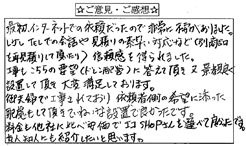 ☆ご意見・ご感想☆
最初、インターネットでの依頼だったので非常に不安がありました。
しかし TELでの会話や見積りの素早い対応など（何回も
を再見積りして頂いた）信頼感を得られました。
工事もこちらの要望（トイレの増築）に答えて頂き又景観良く
設置して頂き大変満足しております。
御夫婦で工事されており依頼者側の希望に添った
配慮もして頂きていねいな設置で良かったです。
料金も他社に比べ安価でエコSHOPさんを選べて良かったです。
友人知人にも紹介したいと思います。